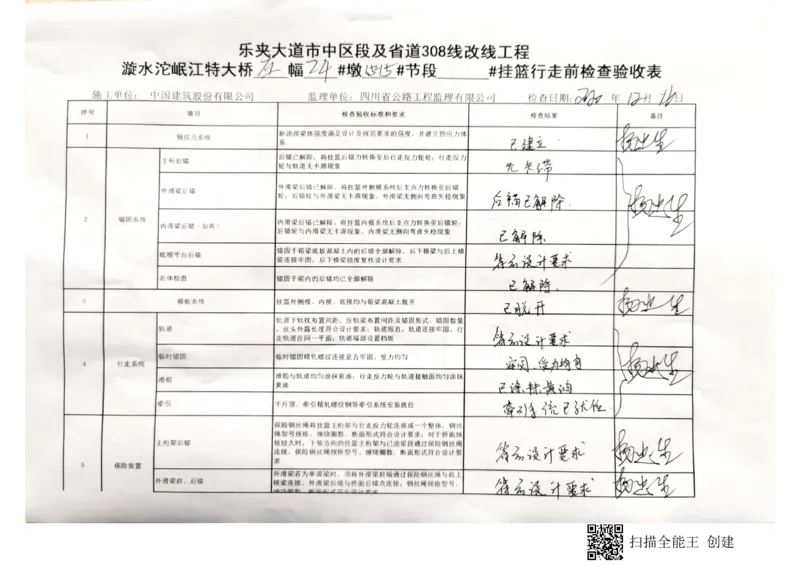 乐夹大道市中区段及省道308线改线工程
漩水沱岷江特大桥 左 幅 24 #墩 #节段 #挂篮行走前检查验收表
施工单位： 中国建筑股份有限公司 监理单位：四川省公路工程监理有限公司 检查日期: 2020 年 12月 16日
序号 项目 检查验收标准和要求 检查结果 备注
1 预应力系统 新浇筑梁体强度满足设计及规范要求的强度，并建立预应力体系 已建立
2 锚固系统
主桁后锚 后锚已解除，将挂篮后锚力转换至后行走反力轮轮；行走反力轮与轨道无卡滞现象 无卡滞
外滑梁后锚 外滑梁后锚已解除，将挂篮外侧模系统后支点力转换至后锚轮；后锚轮与外滑梁无卡滞现象、外滑梁无侧向弯曲失稳现象 后锚已解除.
内滑梁后锚（如有） 内滑梁后锚已解除，将挂篮内模系统后支点力转换至后锚轮；后锚轮与内滑梁无卡滞现象、内滑梁无侧向弯曲失稳现象 已解除.
底模平台后锚 锚固于箱梁底板混凝土内的后锚全部解除，后下横梁与后上横梁连接牢固，后下横梁挠度复核设计要求 符合设计要求
总体检查 锚固于梁内的后锚均已全部解除 已解除.
3 模板系统 挂篮外侧模、内模、底模均与箱梁混凝土脱开 已脱开
4 行走系统
轨道 轨道下轨枕布置间距、压轨梁布置间距及锚固形式、锚固数量、丝头外露长度符合设计要求；轨道顺直，轨道连接牢固，行走轨道在同一平面；轨道端部设置挡板 符合设计要求
临时锚固 临时锚固精轧螺纹连接是否牢固，受力均匀 牢固、受力均匀
滑船 滑船与轨道均匀涂抹黄油，行走反力轮与轨道接触面均匀涂抹黄油 已涂抹黄油
牵引 千斤顶、牵引精轧螺纹钢等牵引系统安装就位 牵引系统已就位.
5 保险装置
主桁梁后锚 保险钢丝绳将挂篮主桁梁与行走反力轮连接成一个整体，钢丝绳型号规格、缠绕圈数、断面形式符合设计要求；对于桥面纵坡较大时，下坡方向的挂篮主桁梁与已浇梁段通过保险钢丝绳连接，保险钢丝绳规格型号、缠绕圈数、断面形式符合设计要求 符合设计要求
外滑梁前、后锚 外滑梁若为单滑梁时，须将外滑梁前端通过保险钢丝绳与前上横梁连接，外滑梁后端与桥面后锚点连接；钢丝绳规格型号、缠绕圈数、断面形式符合设计要求 符合设计要求
扫描全能王 创建